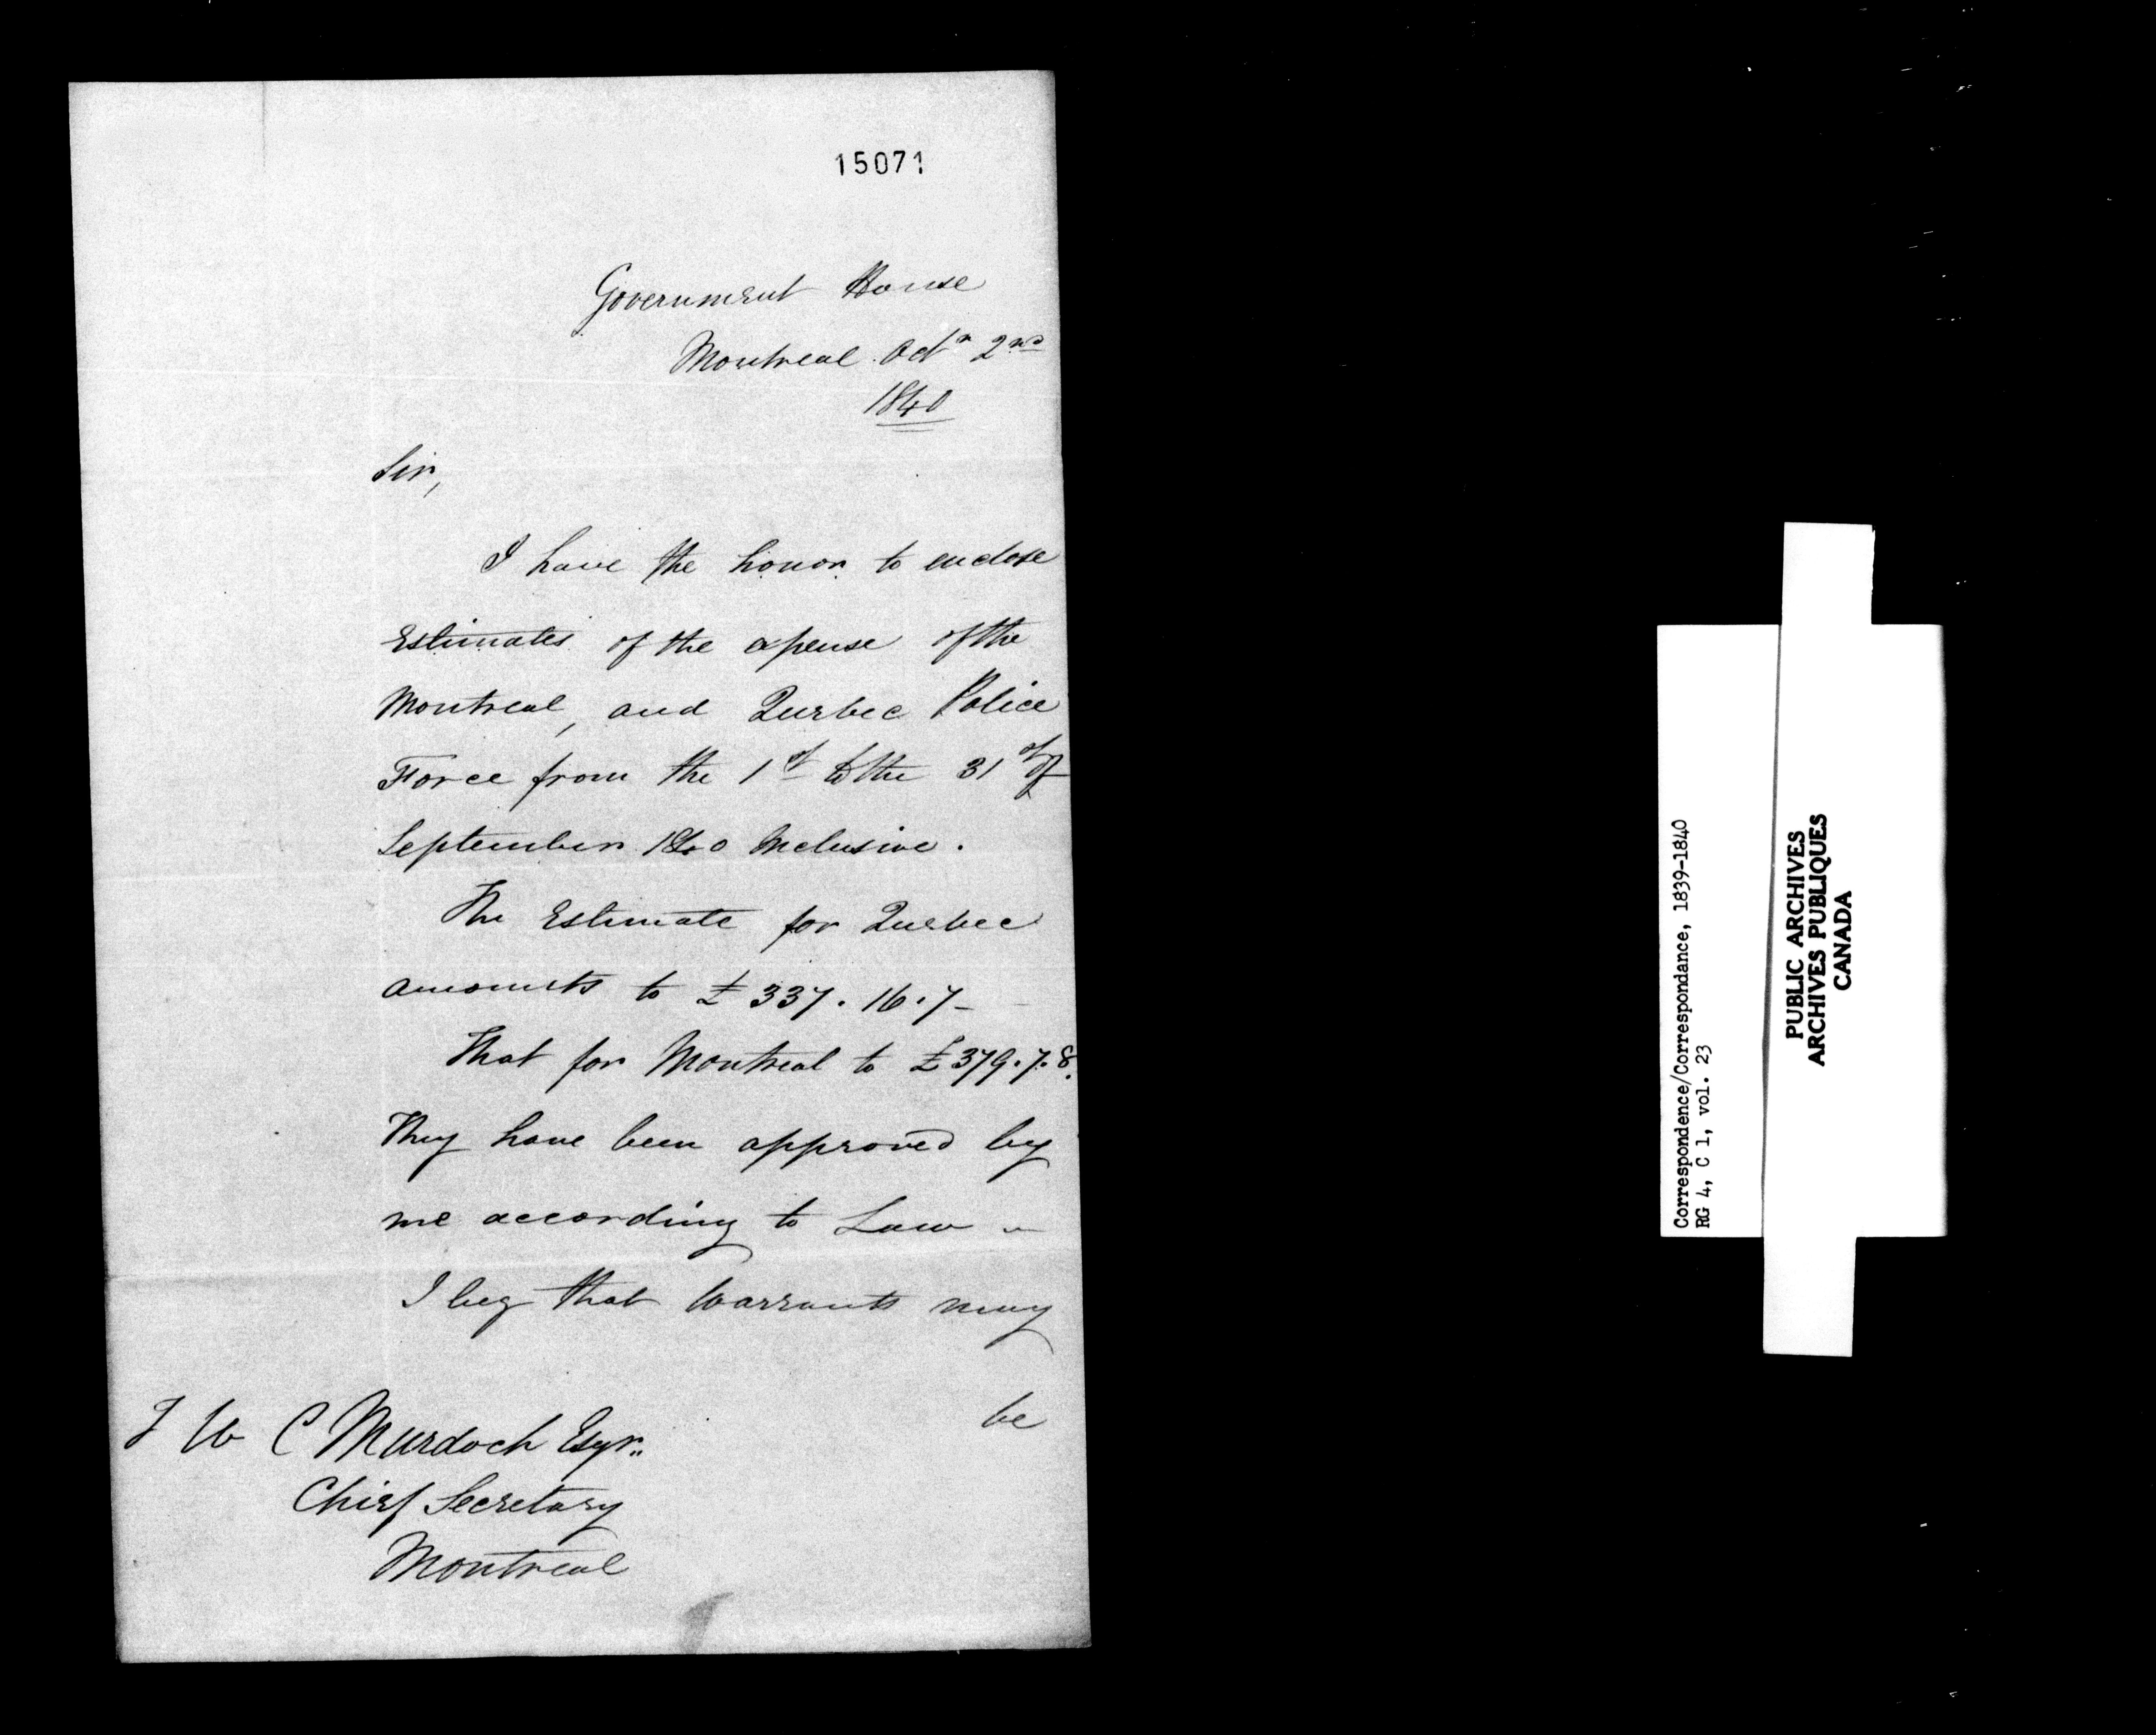 15071
Government House
Montreal Octr 2nd
1840
Sir,
I have the honor to enclose
Estimates of the expense of the
Montreal, and Quebec Police
Force from the 1st to the 31st of
September 1840 Inclusive.
The Estimate for Quebec
amounts to £337.16.7-
That for Montreal to £379.7.8.
They have been approved by
me according to Law -
I beg that Warrants may
be
T W C Murdoch Esqr..
Chief Secretary
Montreal
Correspondence/Correspondance, 1839-1840
RG 4, C 1, vol. 23
PUBLIC ARCHIVES
ARCHIVES PUBLIQUES
CANADA